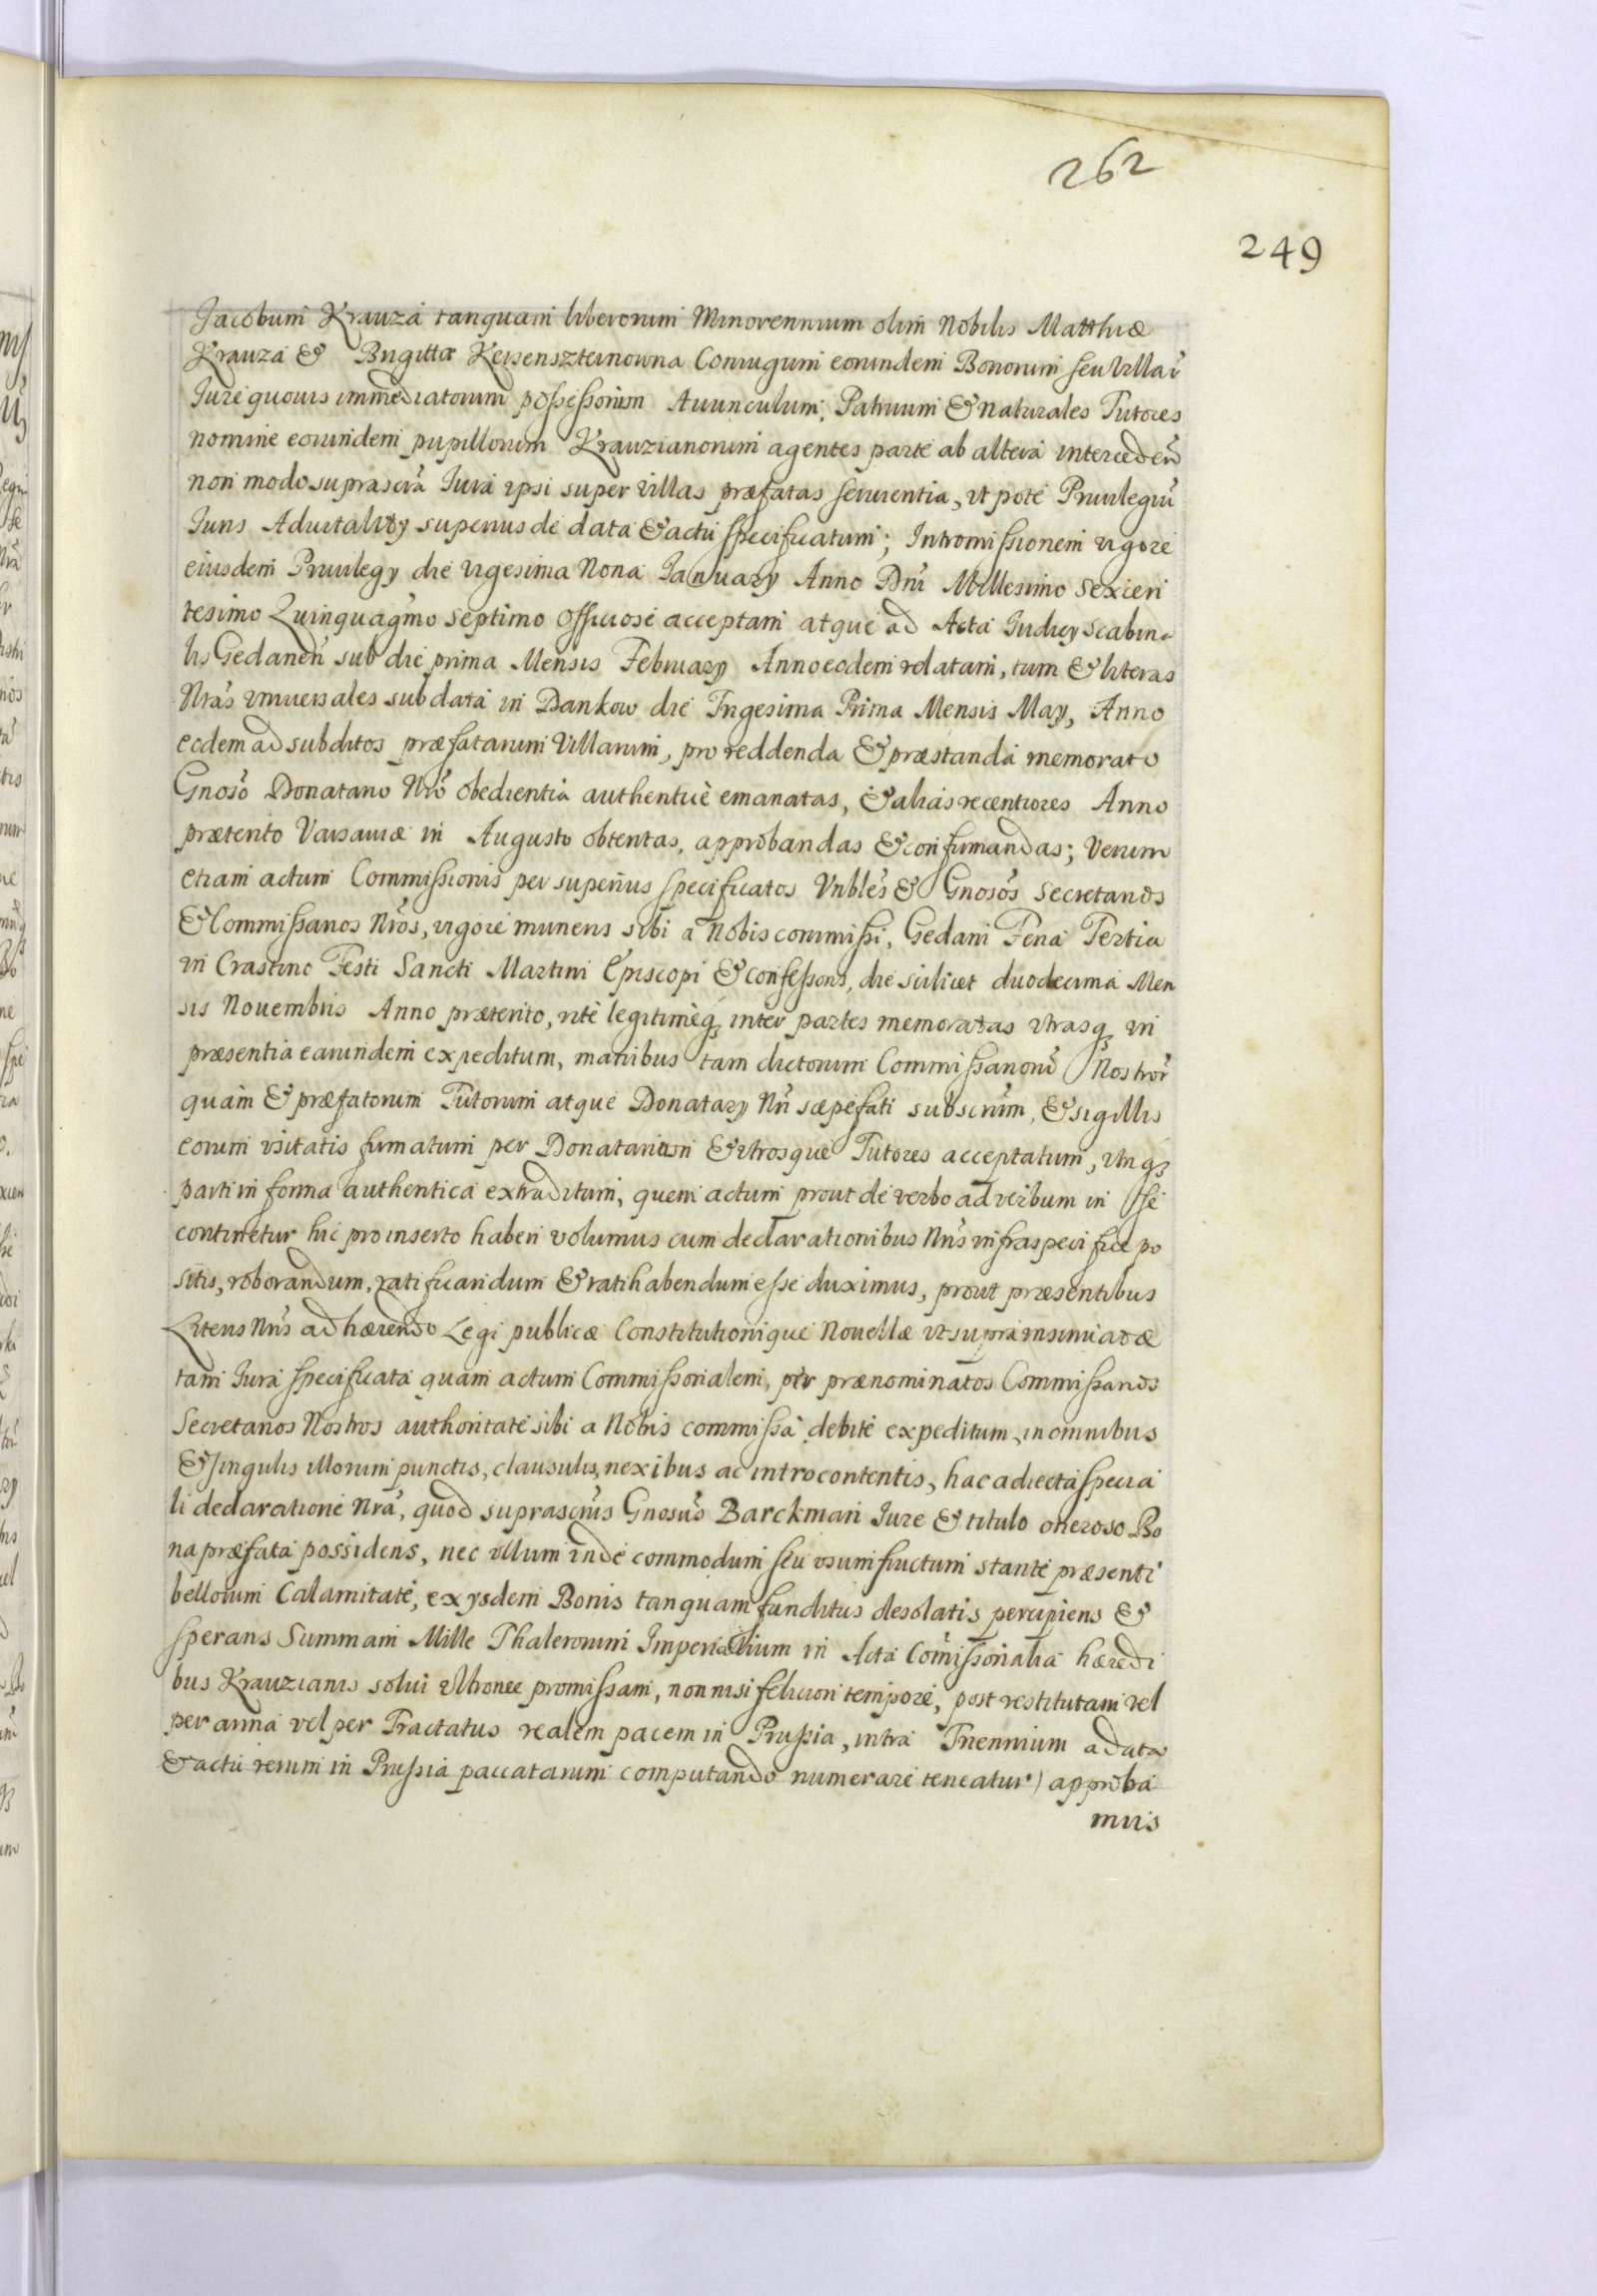 262
249
Jacobum Krauza tanquam liberorum Minorennium olim Nobilis Matthiæ
Krauza & Brigittæ Keisenszteinowna Coniugum eorundem Bonorum seu Villar̃
Jure quouis immediatorum possessorum Auunculum, Patruum & naturales Tutores
nomine eorundem pupillorum Krauzianorum agentes parte ab altera interceden̄
non modo suprascrã Jura ipsi super villas præfatas seruientia, ut pote Priuilegiũ
Juris Aduitality superius de data & actu specificatum; Intromissionem vigore
eiusdem Priuilegy die vigesima Nona January Anno Dnĩ Millesimo Sexcen
tesimo Quinquagmo Septimo Officiose acceptam atque ad Acta Judicy Scabina
lis Gedanen̄ sub die prima Mensis February Anno eodem relatam, tum & literas
Nrãs vniuersales sub data in Dankow die Trigesima Prima Mensis May, Anno
eodem ad subditos præfatarum Villarum, pro reddenda & præstanda memorato
Gnoso Donatario Nrõ obedientia authenticè emanatas, & alias recentiores Anno
præterito Varsauiæ in Augusto obtentas, approbandas & confirmandas; Verum
etiam actum Commissionis per superius specificatos Vrbles & Gnosos Secretarios
& Commissarios Nrõs, vigore muneris sibi a Nobis commissi, Gedani Feria Tertia
in Crastino Festi Sancti Martini Episcopi & confessoris, die scilicet duodecima Men
sis Nouembris Anno præterito, ritè legitimeq̨ inter partes memoratas vtrasq̨ in
præsentia earundem expeditum, manibus tam dictorum Commissariorũ Nostror̃
quam & præfatorum Tutorum atque Donatary Nrĩ sæpefati subscrm̃, & sigillis
eorum vsitatis firmatum per Donatarium & vtrosque Tutores acceptatum, vtriq̨
parti in forma authentica extraditum, quem actum prout de verbo ad verbum in se
continetur hic pro inserto haberi volumus cum declarationibus Nrĩs infra specifice po
sitis, roborandum, ratificandum & ratihabendum esse duximus, prout præsentibus
Literis Nrĩs adhærendo Legi publicæ Constitutionique Nouellæ vt supra insinuatæ
tam Jura specificata quam actum Commissorialem, per prænominatos Commissarios
Secretarios Nostros authoritate sibi a Nobis commissa debite expeditum, in omnibus
& singulis illorum punctis, clausulis, nexibus ac introcontentis, hac adiecta specia
li declaratione Nrã, quod suprascrus Gnosus Barckman Jure & titulo oneroso Bo
na præfata possidens, nec vllum inde commodum seu vsumfructum stante præsenti
bellorum Calamitate, ex ysdem Bonis tanquam funditus desolatis percipiens &
sperans Summam Mille Thalerorum Imperialium in Acta Com̃issorialia hæredi
bus Krauzianis solui vltronee promissam, non nisi feliciori tempore, post restitutam vel
per arma vel per Tractatus realem pacem in Prussia, intra Triennium a data
& actu rerum in Prussia paccatarum computando numerare teneatur) approba
mus